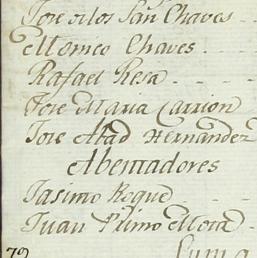 Jose de los San.s Chaves
Romeo Chaves
Rafael Resa
Jose Maria Carrion
Jose Abad Hernandez
Abentadores
Jasimo Roque
Juan Primo Mora
Suma
79